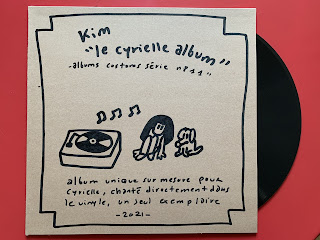 Kim
"le cyrielle album"
-albums customs série n°11"
album unique sur mesure pour
cyrielle, chanté directement dans
le vinyle, un seul exemplaire
-2021-